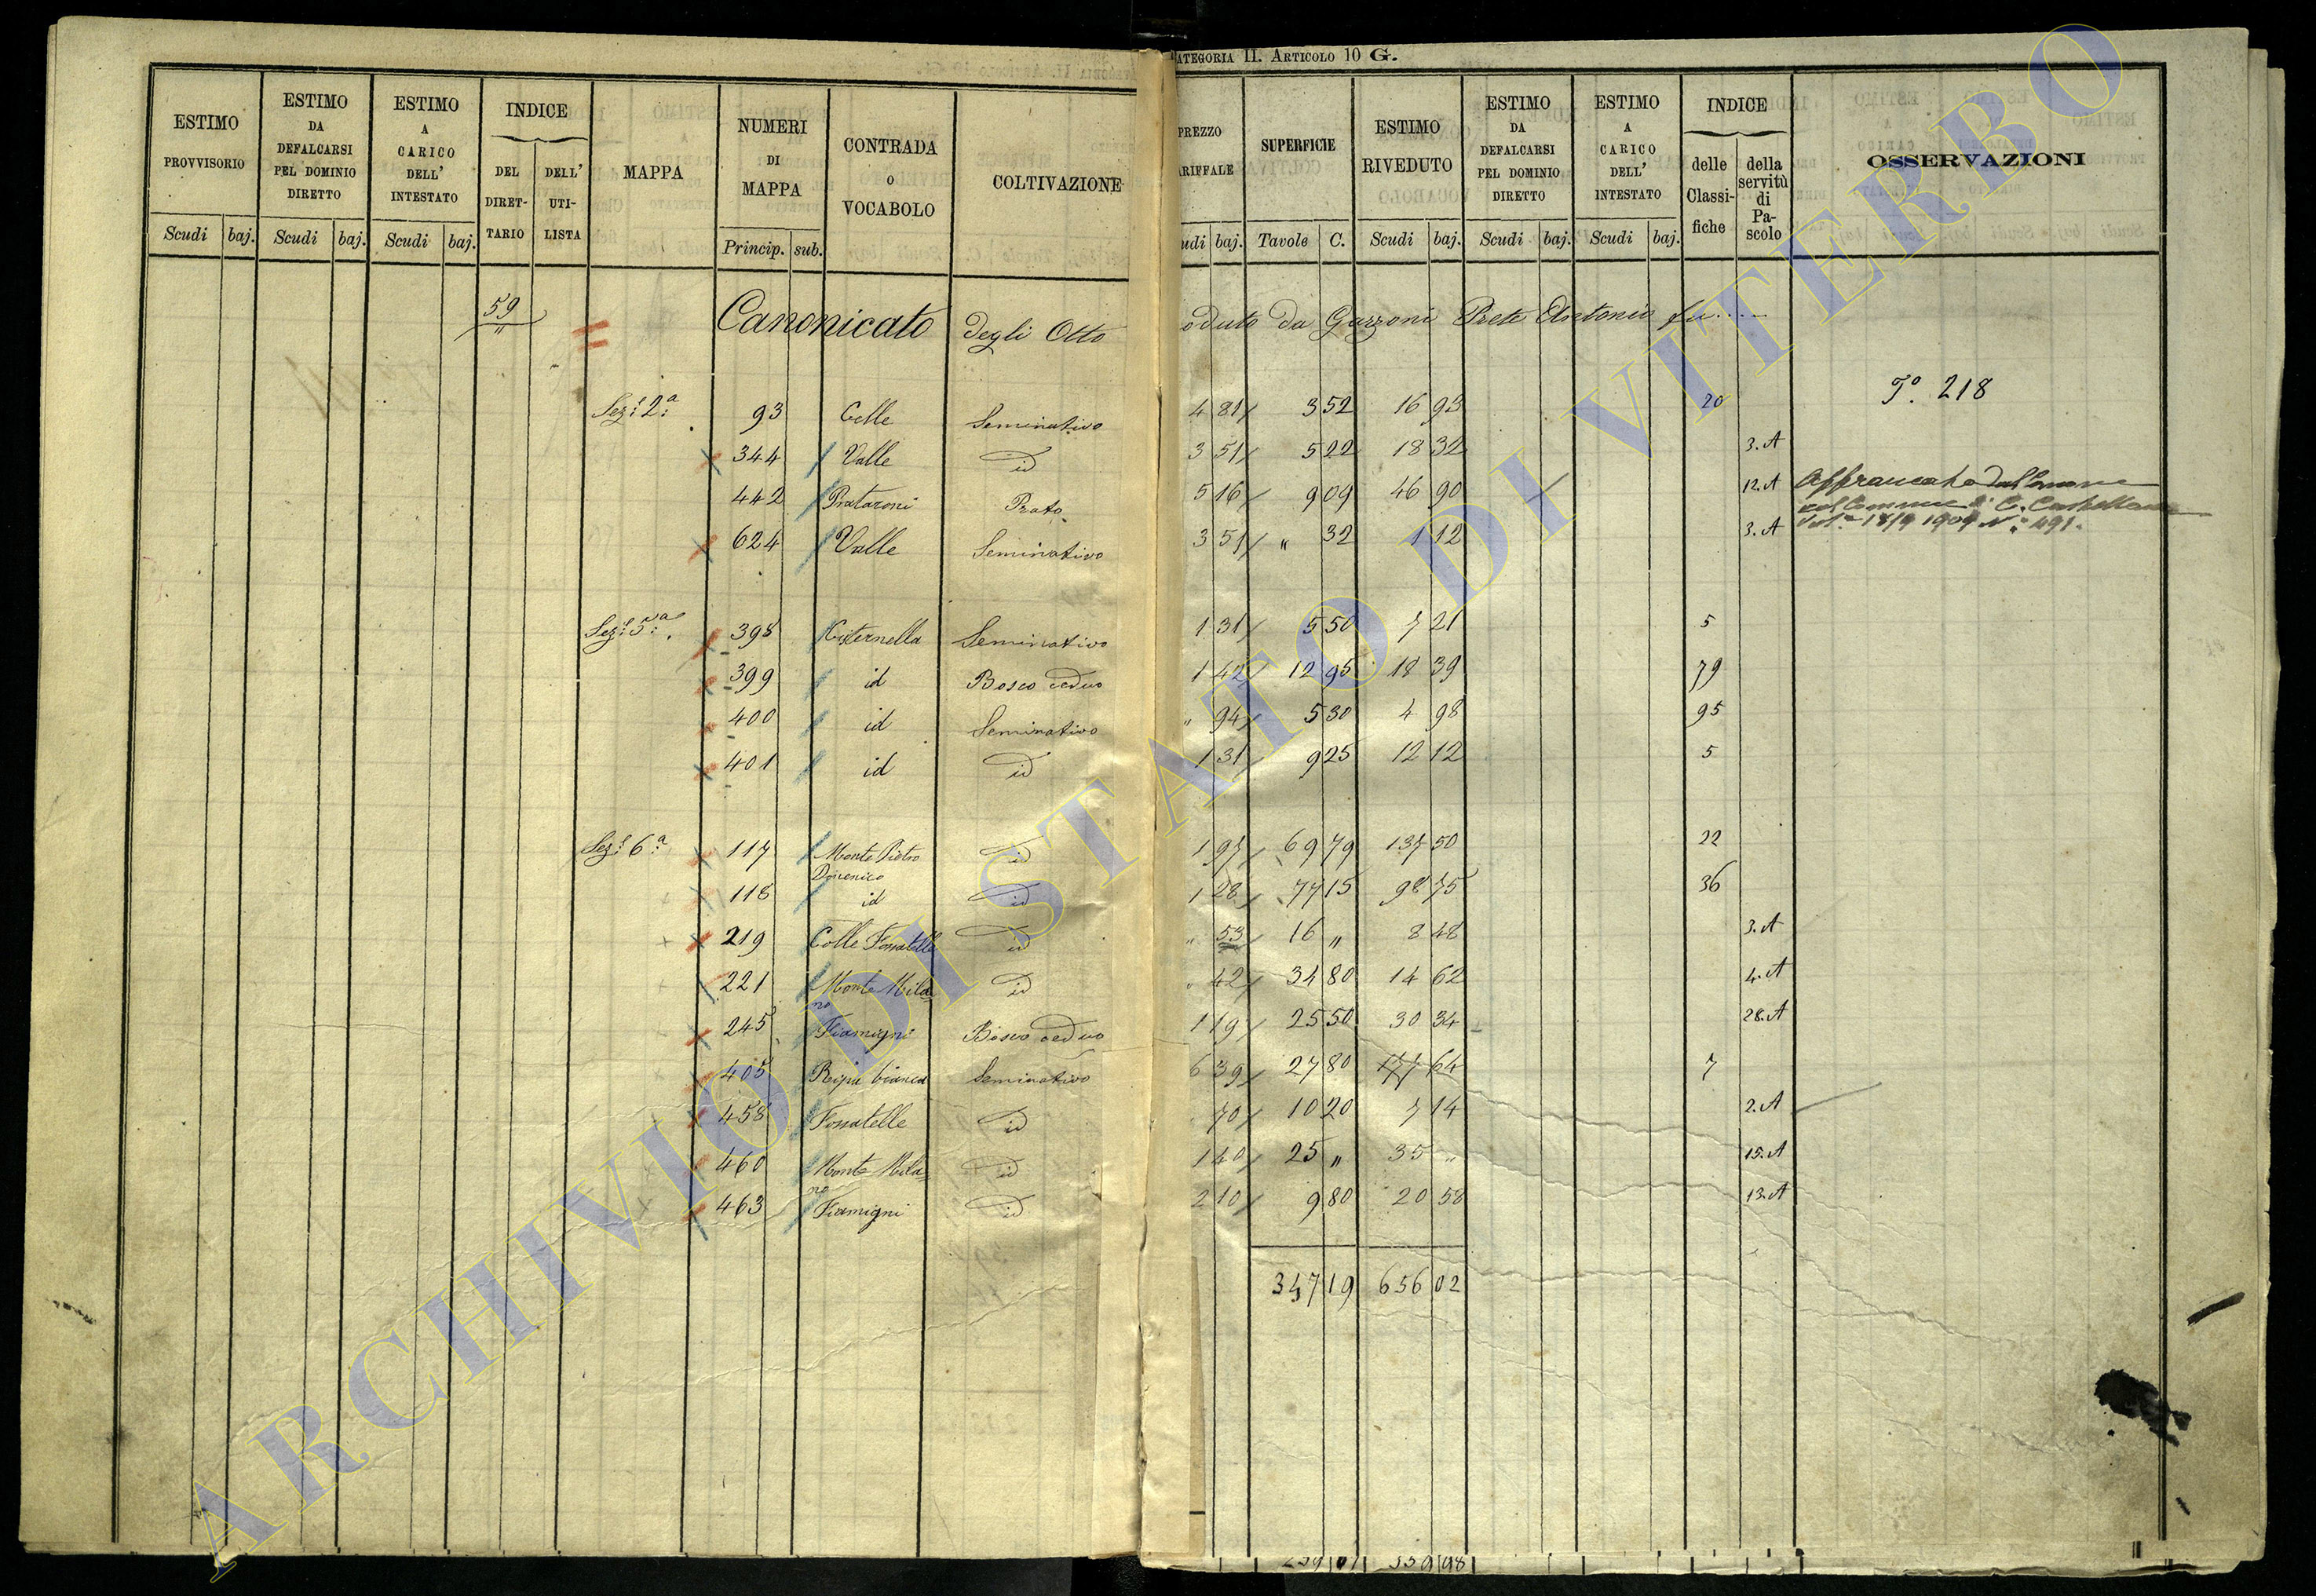 ATEGORIA II. ARTICOLO 10 G.
ESTIMO PROVVISORIO
ESTIMO DA DEFALCARSI PEL DOMINIO DIRETTO
ESTIMO A CARICO DELL' INTESTATO
INDICE
DEL DIRET-TARIO
DELL' UTI-LISTA
MAPPA
NUMERI DI MAPPA
CONTRADA O VOCABOLO
COLTIVAZIONE
Scudi baj. Scudi baj. Scudi baj. Princip. sub.
PREZZO ARIFFALE
SUPERFICIE
ESTIMO RIVEDUTO
ESTIMO DA DEFALCARSI PEL DOMINIO DIRETTO
ESTIMO A CARICO DELL' INTESTATO
INDICE
delle Classi-fiche
della servitù di Pa-scolo
OSSERVAZIONI
udi baj. Tavole C. Scudi baj. Scudi baj. Scudi baj.
59 Canonicato degli Otto oduto da Gazzoni Prete Antonio fu
T.º 218
Sez: 2.ª 93 Colle Seminativo 4 81 3 52 16 93 20
344 Valle id 3 51 5 22 18 32 3.A
442 Prataroni Prato 5 16 9 09 46 90 12.A Affrancato
624 Valle Seminativo 3 51 " 32 1 12 3.A 1909 N. 491
Sez: 5.ª 398 Citernella Seminativo 1 31 5 50 7 21 5
399 id Bosco ceduo 1 42 12 95 18 39 79
400 id Seminativo " 94 5 30 4 98 95
401 id id 1 31 9 25 12 12 5
Sez: 6.ª 117 Monte Pietro Domenico id 1 97 69 79 137 50 22
118 id id 1 28 77 15 98 75 36
219 Colle Fossatelle id " 53 16 " 8 48 3.A
221 Monte Milano id " 42 34 80 14 62 4.A
245 Fiamigni Bosco ceduo 1 19 25 50 30 34 28.A
405 Ripa bianca Seminativo 6 39 27 80 177 64 7
458 Fossatelle id 70 10 20 7 14 2.A
460 Monte Milano id 1 40 25 " 35 " 15.A
463 Fiamigni id 2 10 9 80 20 58 13.A
347 19 656 02
ARCHIVIO DI STATO DI VITERBO